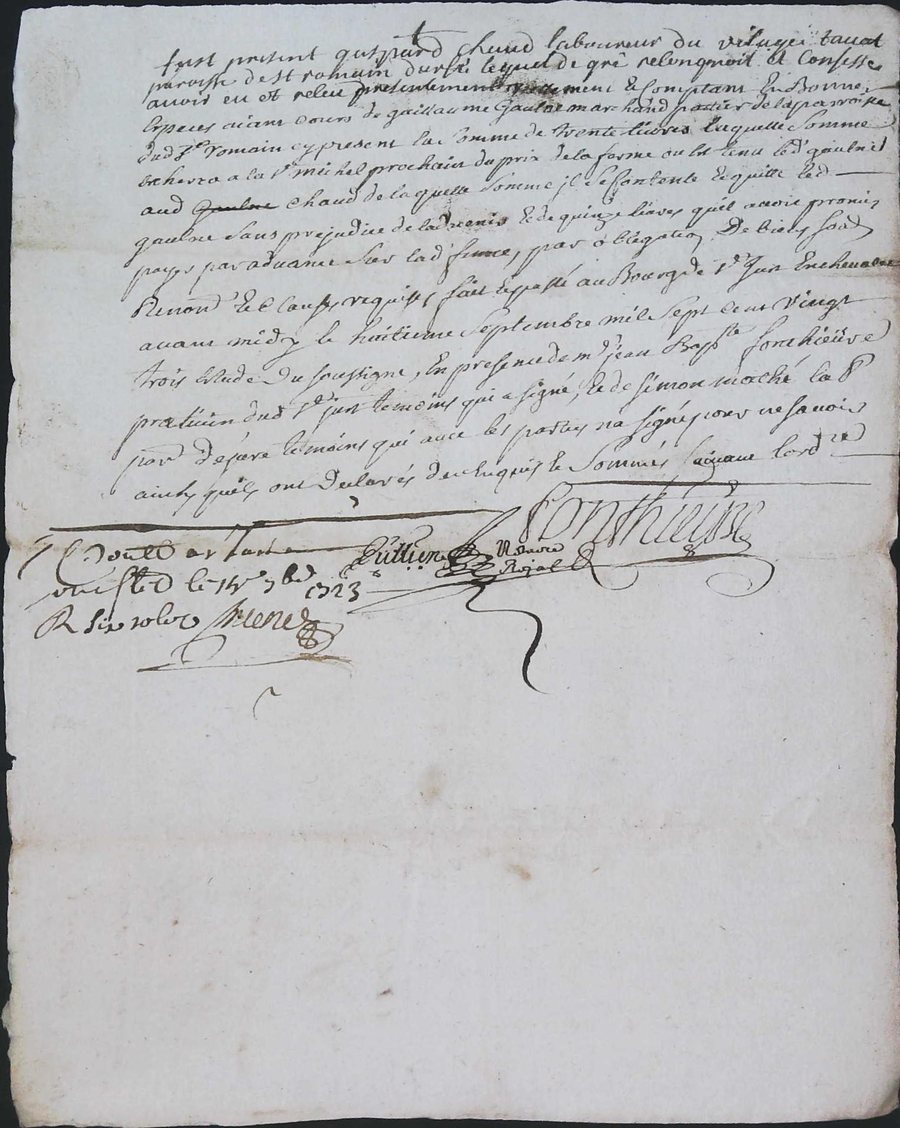 fust present guspard Chaud laboureur du vilage tavat
paroisse de St romain durfé lequel de gré recongnoit et Confesse
avoir eu et releu presentement reellement et Comptant En Bonne
Especes aiant Cours de guillaume Gaulne marchand pottier de la parroisse
dud St romain cy present la Somme de trente livres laquelle Somme
a la St michel prochain du prix de la ferme ou Est tenu led gaulne
aud Gaulne Chaud de laquelle Somme jl se Contente Et quitte led
gaulne Sans prejudice de Et de quinze livres quil avoit promis
payer par advance Sur lad ferme, par obligation De biens Soub
Renond et Clauses requises fait Et passé au Bourg de St Just En chevalet
avant midy le huitieme Septembre mil Sept Cent Vingt
trois Etude Du Soussigné, En presence de mr jean Bapte Ponthieure
praticien dud St just temoins qui a signé, Et de Simon maché la P
temoins qui avec les parties na signé pour ne Savoir
ainsy quils ont Declarés de Enquis Et Sommés Suivant lordre
Ponthieure
Control ar
le 14e 7bre 1723
Jullien Notaire
Royal
R Six sols